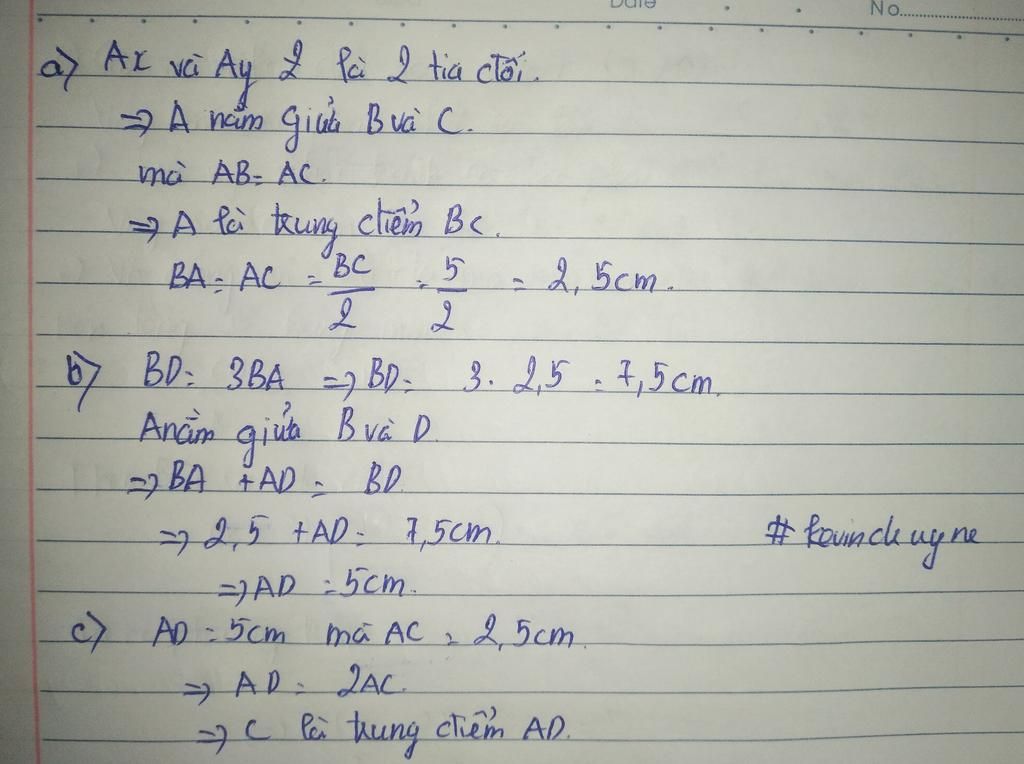 Date
No.
a) Ax và Ay 2 là 2 tia đối.
=> A nằm giữa B và C.
mà AB = AC.
=> A là trung điểm BC.
BA = AC = BC/2 = 5/2 = 2,5cm.
b) BD = 3BA => BD = 3. 2,5 = 7,5cm.
A nằm giữa B và D.
=> BA + AD = BD
=> 2,5 + AD = 7,5cm.
# kevinduyne
=> AD = 5cm.
c) AD = 5cm mà AC = 2,5cm
=> AD = 2AC.
=> C là trung điểm AD.